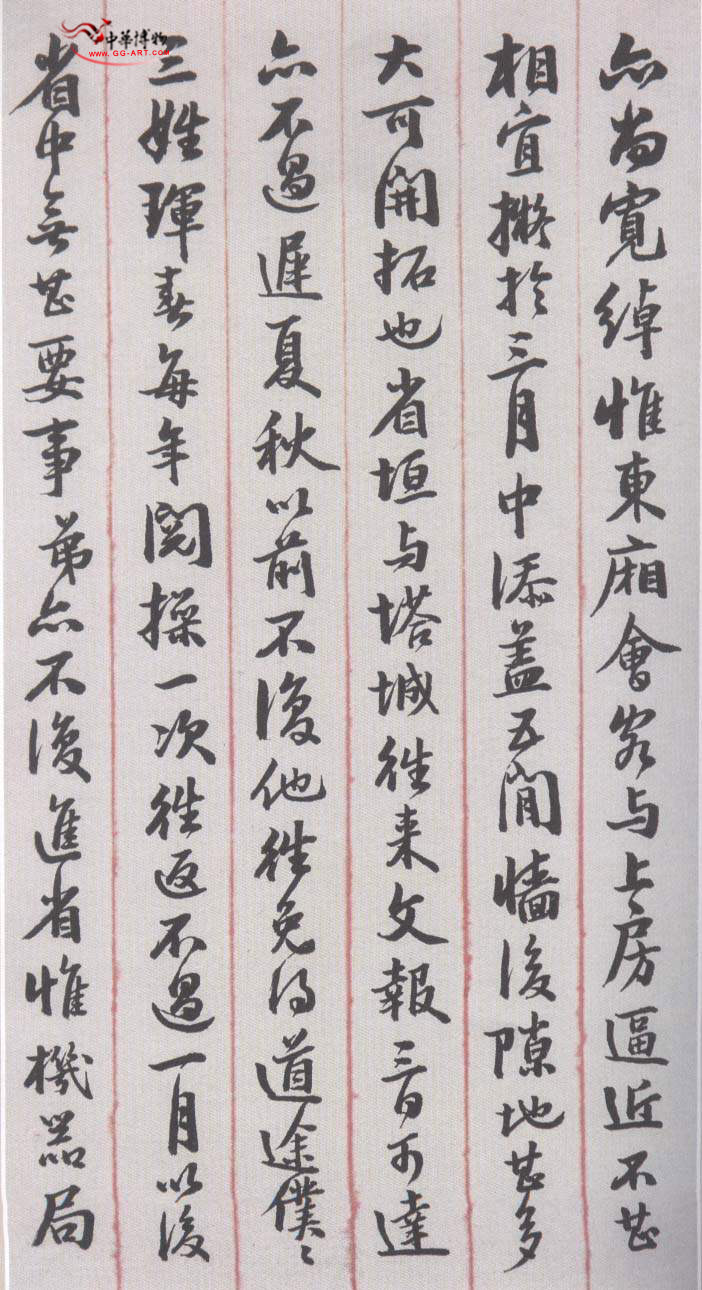 亦尚寬綽惟東廂會客与上房逼近不甚
相宜擬於三月中添蓋五間墻後隙地甚多
大可開拓也省垣与塔城往来文報三日可達
亦不過遲夏秋以前不復他往免得道途僕〻
三姓琿春每年閱操一次往返不過一月以後
省中無甚要事弟亦不復進省惟機器局
中華博物
www.GG-ART.com